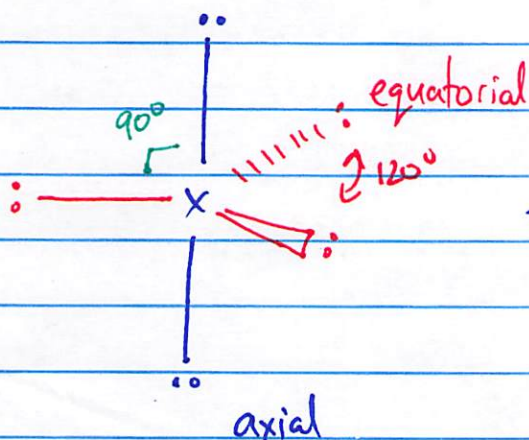 equatorial
90°
120°
X
axial